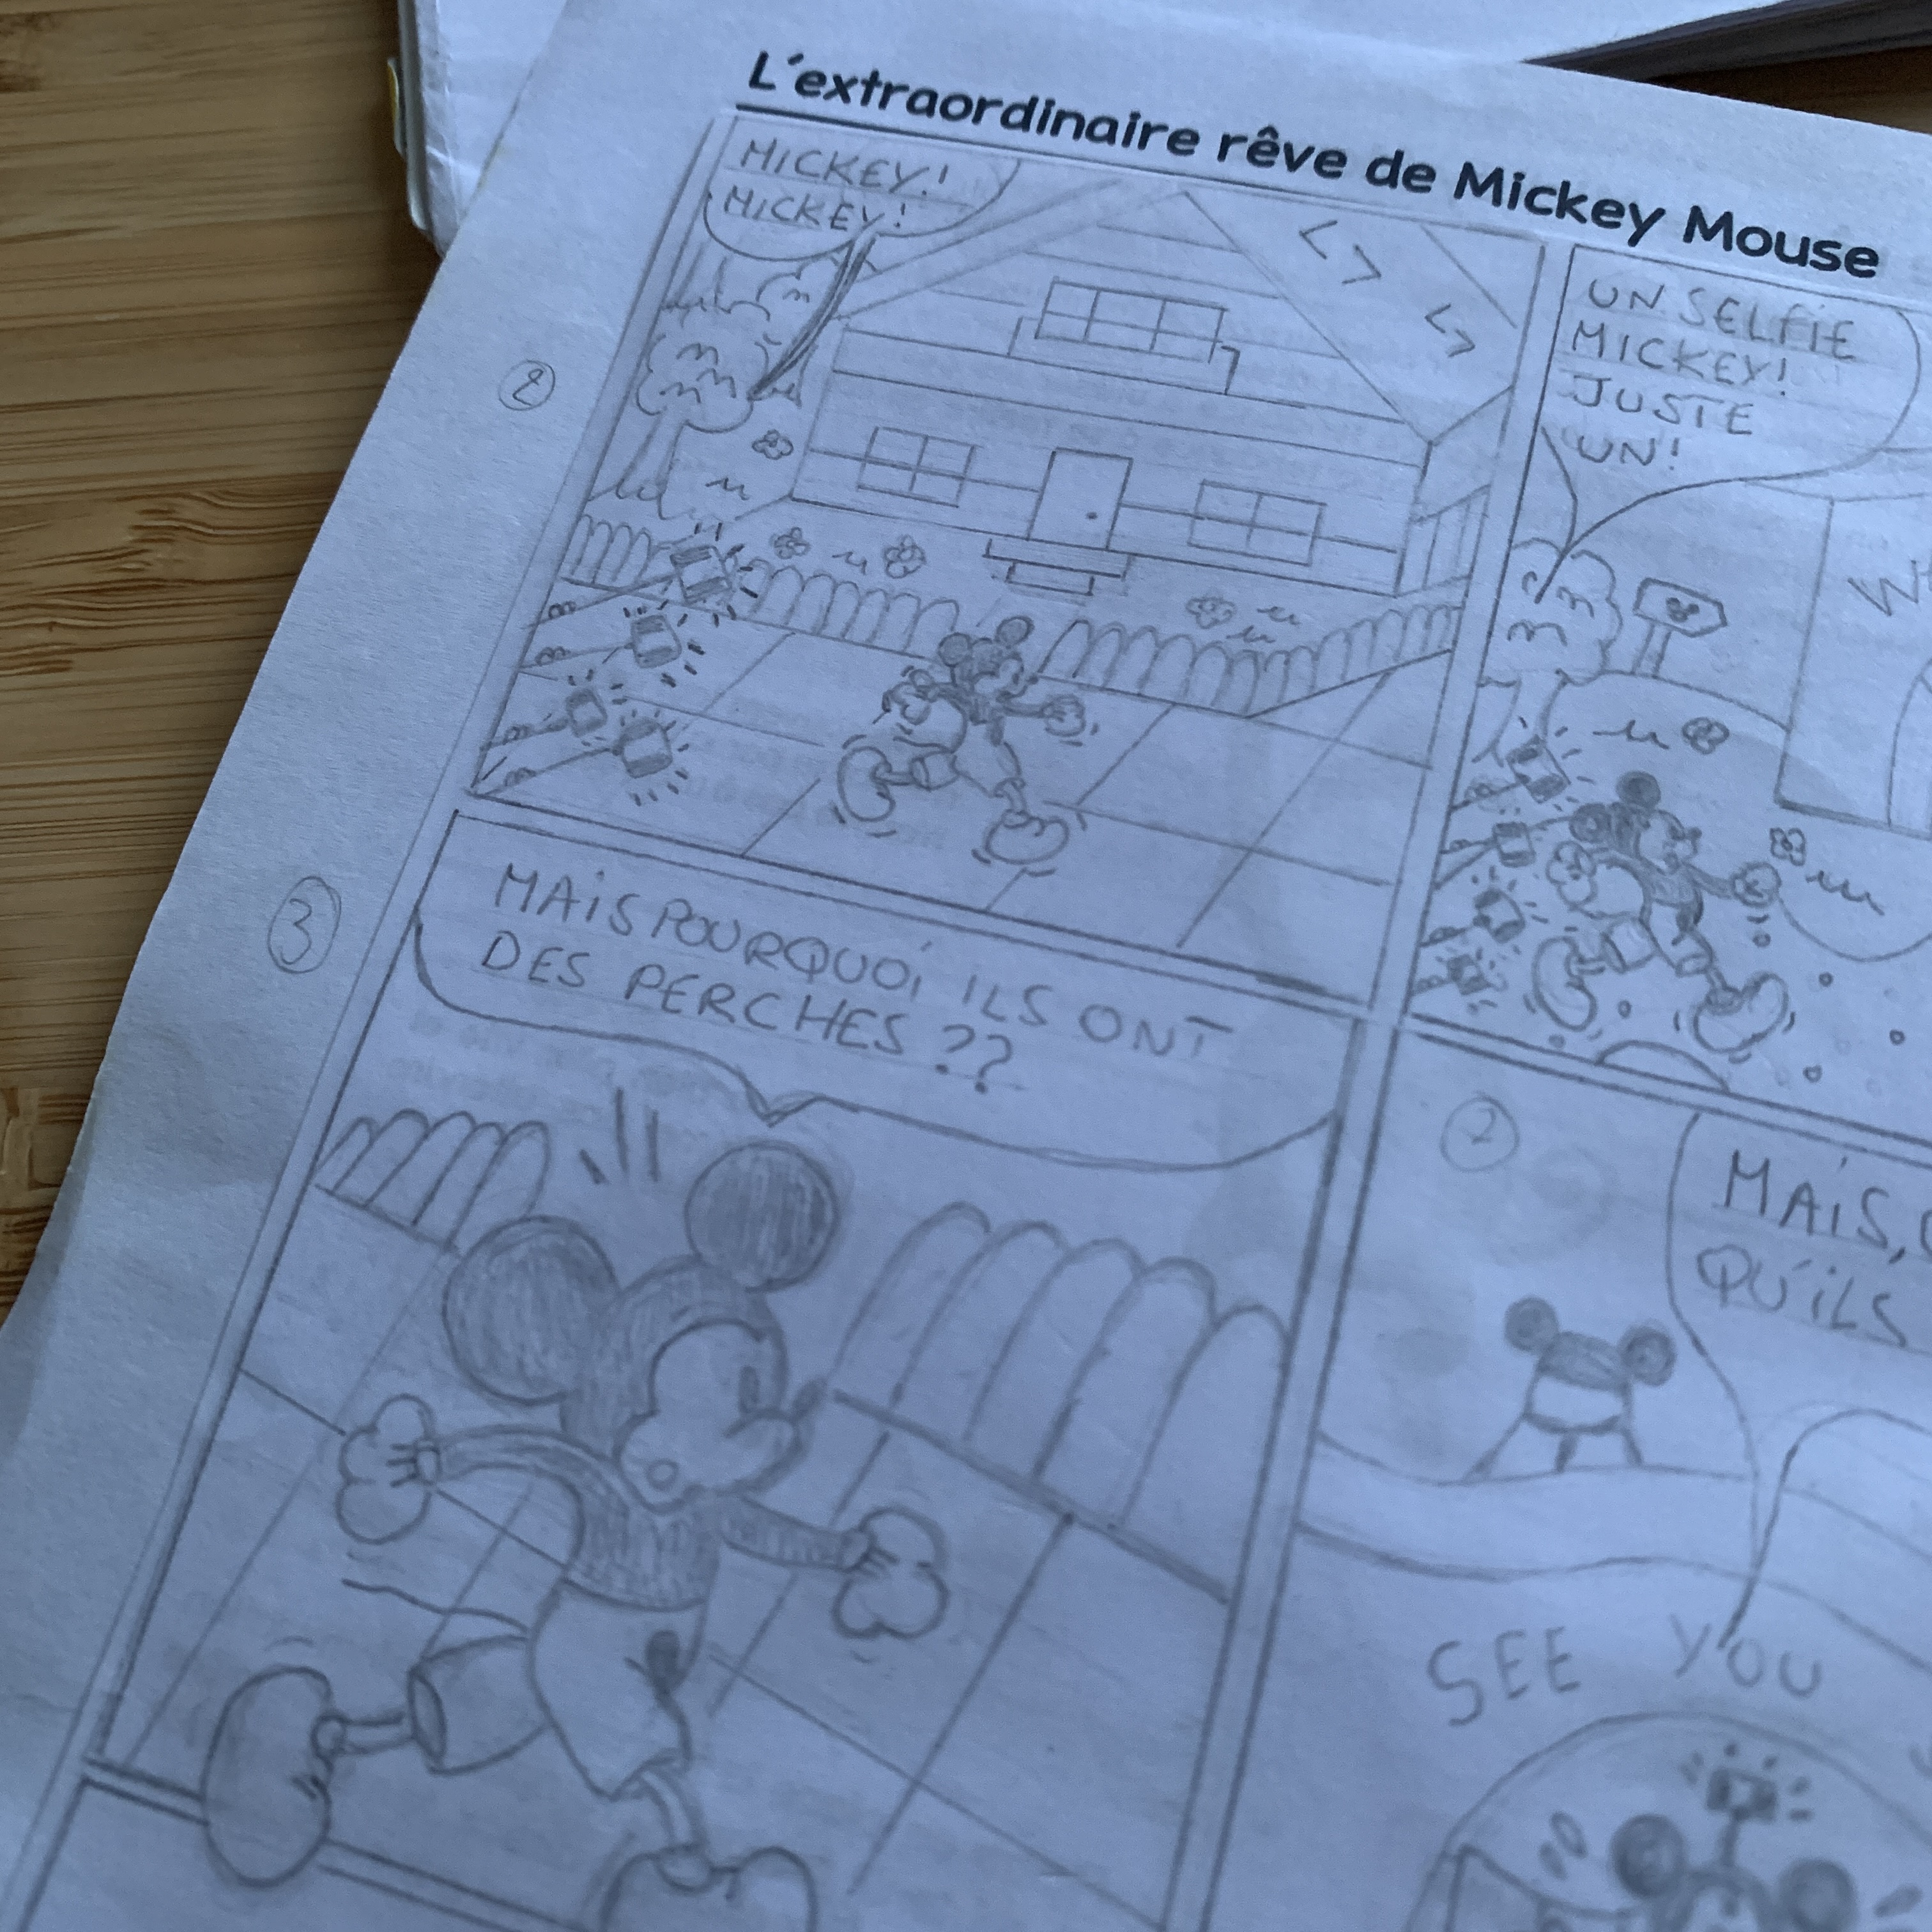 L'extraordinaire rêve de Mickey Mouse
MICKEY!
MICKEY!
UN SELFIE
MICKEY!
JUSTE
UN!
2
3
MAIS POURQUOI ILS ONT
DES PERCHES ??
2
MAIS,
QU'ILS
SEE YOU